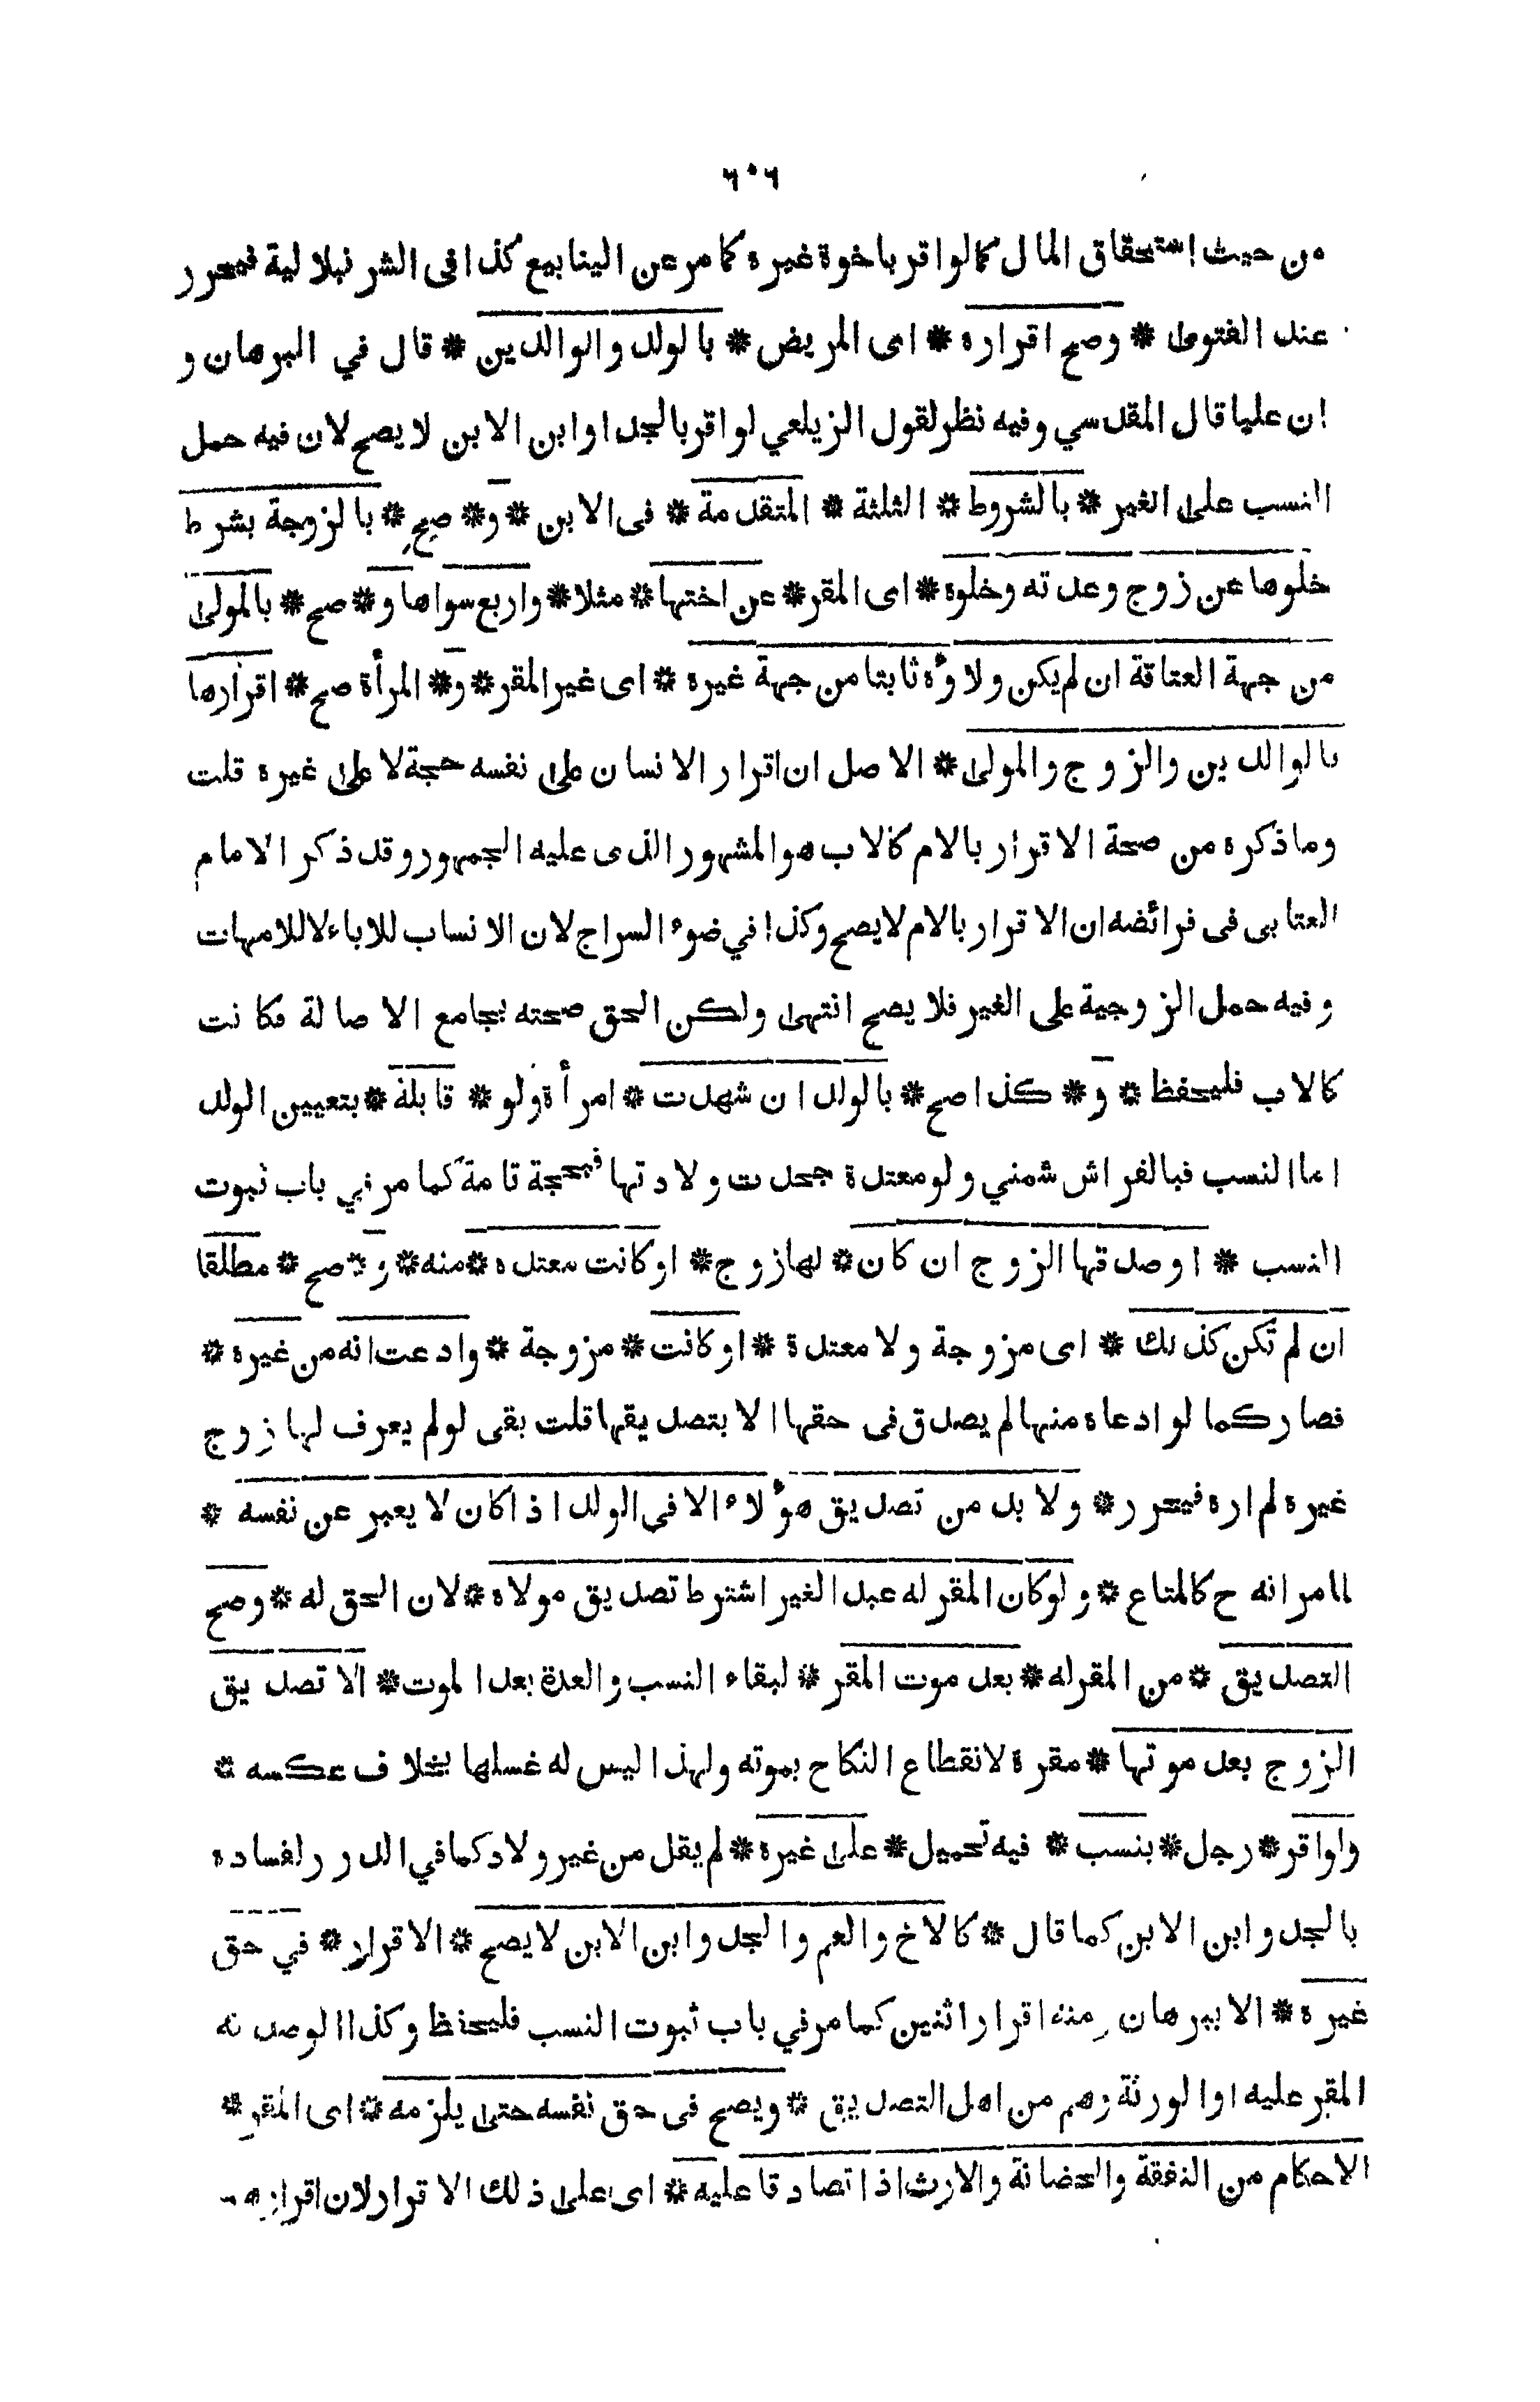 ٦٠٦
من حيث استحقاق المال كما لو اقر باخوة غيره كما مر عن الينابيع كذا فى الشرنبلالية فيحرر
عند الفتوى * وصح اقراره * اى المريض * بالولد والوالدين * قال في البرهان و
ان عليا قال المقدسي وفيه نظر لقول الزيلعي لو اقر بالجد او ابن الابن لا يصح لان فيه حمل
النسب على الغير * بالشروط * الثلثة * المتقدمة * فى الابن * و * صح * بالزوجة بشرط
خلوها عن زوج وعدته وخلوه * اى المقر * عن اختها * مثلا * واربع سواها و * صح * بالمولى
من جهة العتاقة ان لم يكن ولاؤه ثابتا من جهة غيره * اى غير المقر * و * المرأة صح * اقرارها
بالوالدين والزوج والمولى * الاصل ان اقرار الانسان على نفسه حجة لا على غيره قلت
وما ذكره من صحة الاقرار بالام كالاب هو المشهور الذى عليه الجمهور وقد ذكر الامام
العتابى فى فرائضه ان الاقرار بالام لا يصح وكذا في ضوء السراج لان الانساب للاباء لا للامهات
وفيه حمل الزوجية على الغير فلا يصح انتهى ولكن الحق صحته بجامع الاصالة فكانت
كالاب فليحفظ * و * كذا صح * بالولد ان شهدت * امرأة ولو * قابلة * بتعيين الولد
اما النسب فبالفراش شمني ولو معتدة جحدت ولادتها فبحجة تامة كما مر في باب ثبوت
النسب * او صدقها الزوج ان كان * لها زوج * او كانت معتدة * منه * و * صح * مطلقا
ان لم تكن كذلك * اى مزوجة ولا معتدة * او كانت * مزوجة * وادعت انه من غيره *
فصار كما لو ادعاه منها لم يصدق فى حقها الا بتصديقها قلت بقى لو لم يعرف لها زوج
غيره لم اره فيحرر * ولا بد من تصديق هؤلاء الا فى الولد اذا كان لا يعبر عن نفسه *
لما مر انه ح كالمتاع * ولو كان المقر له عبد الغير اشترط تصديق مولاه * لان الحق له * وصح
التصديق * من المقر له * بعد موت المقر * لبقاء النسب والعدة بعد الموت * الا تصديق
الزوج بعد موتها * مقرة لانقطاع النكاح بموته ولهذا ليس له غسلها بخلاف عكسه *
ولو اقر * رجل * بنسب * فيه تحميل * على غيره * لم يقل من غير ولاد كما في الدرر لفساده
بالجد وابن الابن كما قال * كالاخ والعم والجد وابن الابن لا يصح * الاقرار * في حق
غيره * الا ببرهان ومنه اقرار اثنين كما مر في باب ثبوت النسب فليحفظ وكذا لو صدقه
المقر عليه او الورثة وهم من اهل التصديق * ويصح فى حق نفسه حتى يلزمه * اى المقر *
الاحكام من النفقة والحضانة والارث اذا تصادقا عليه * اى على ذلك الاقرار لان اقرارهما